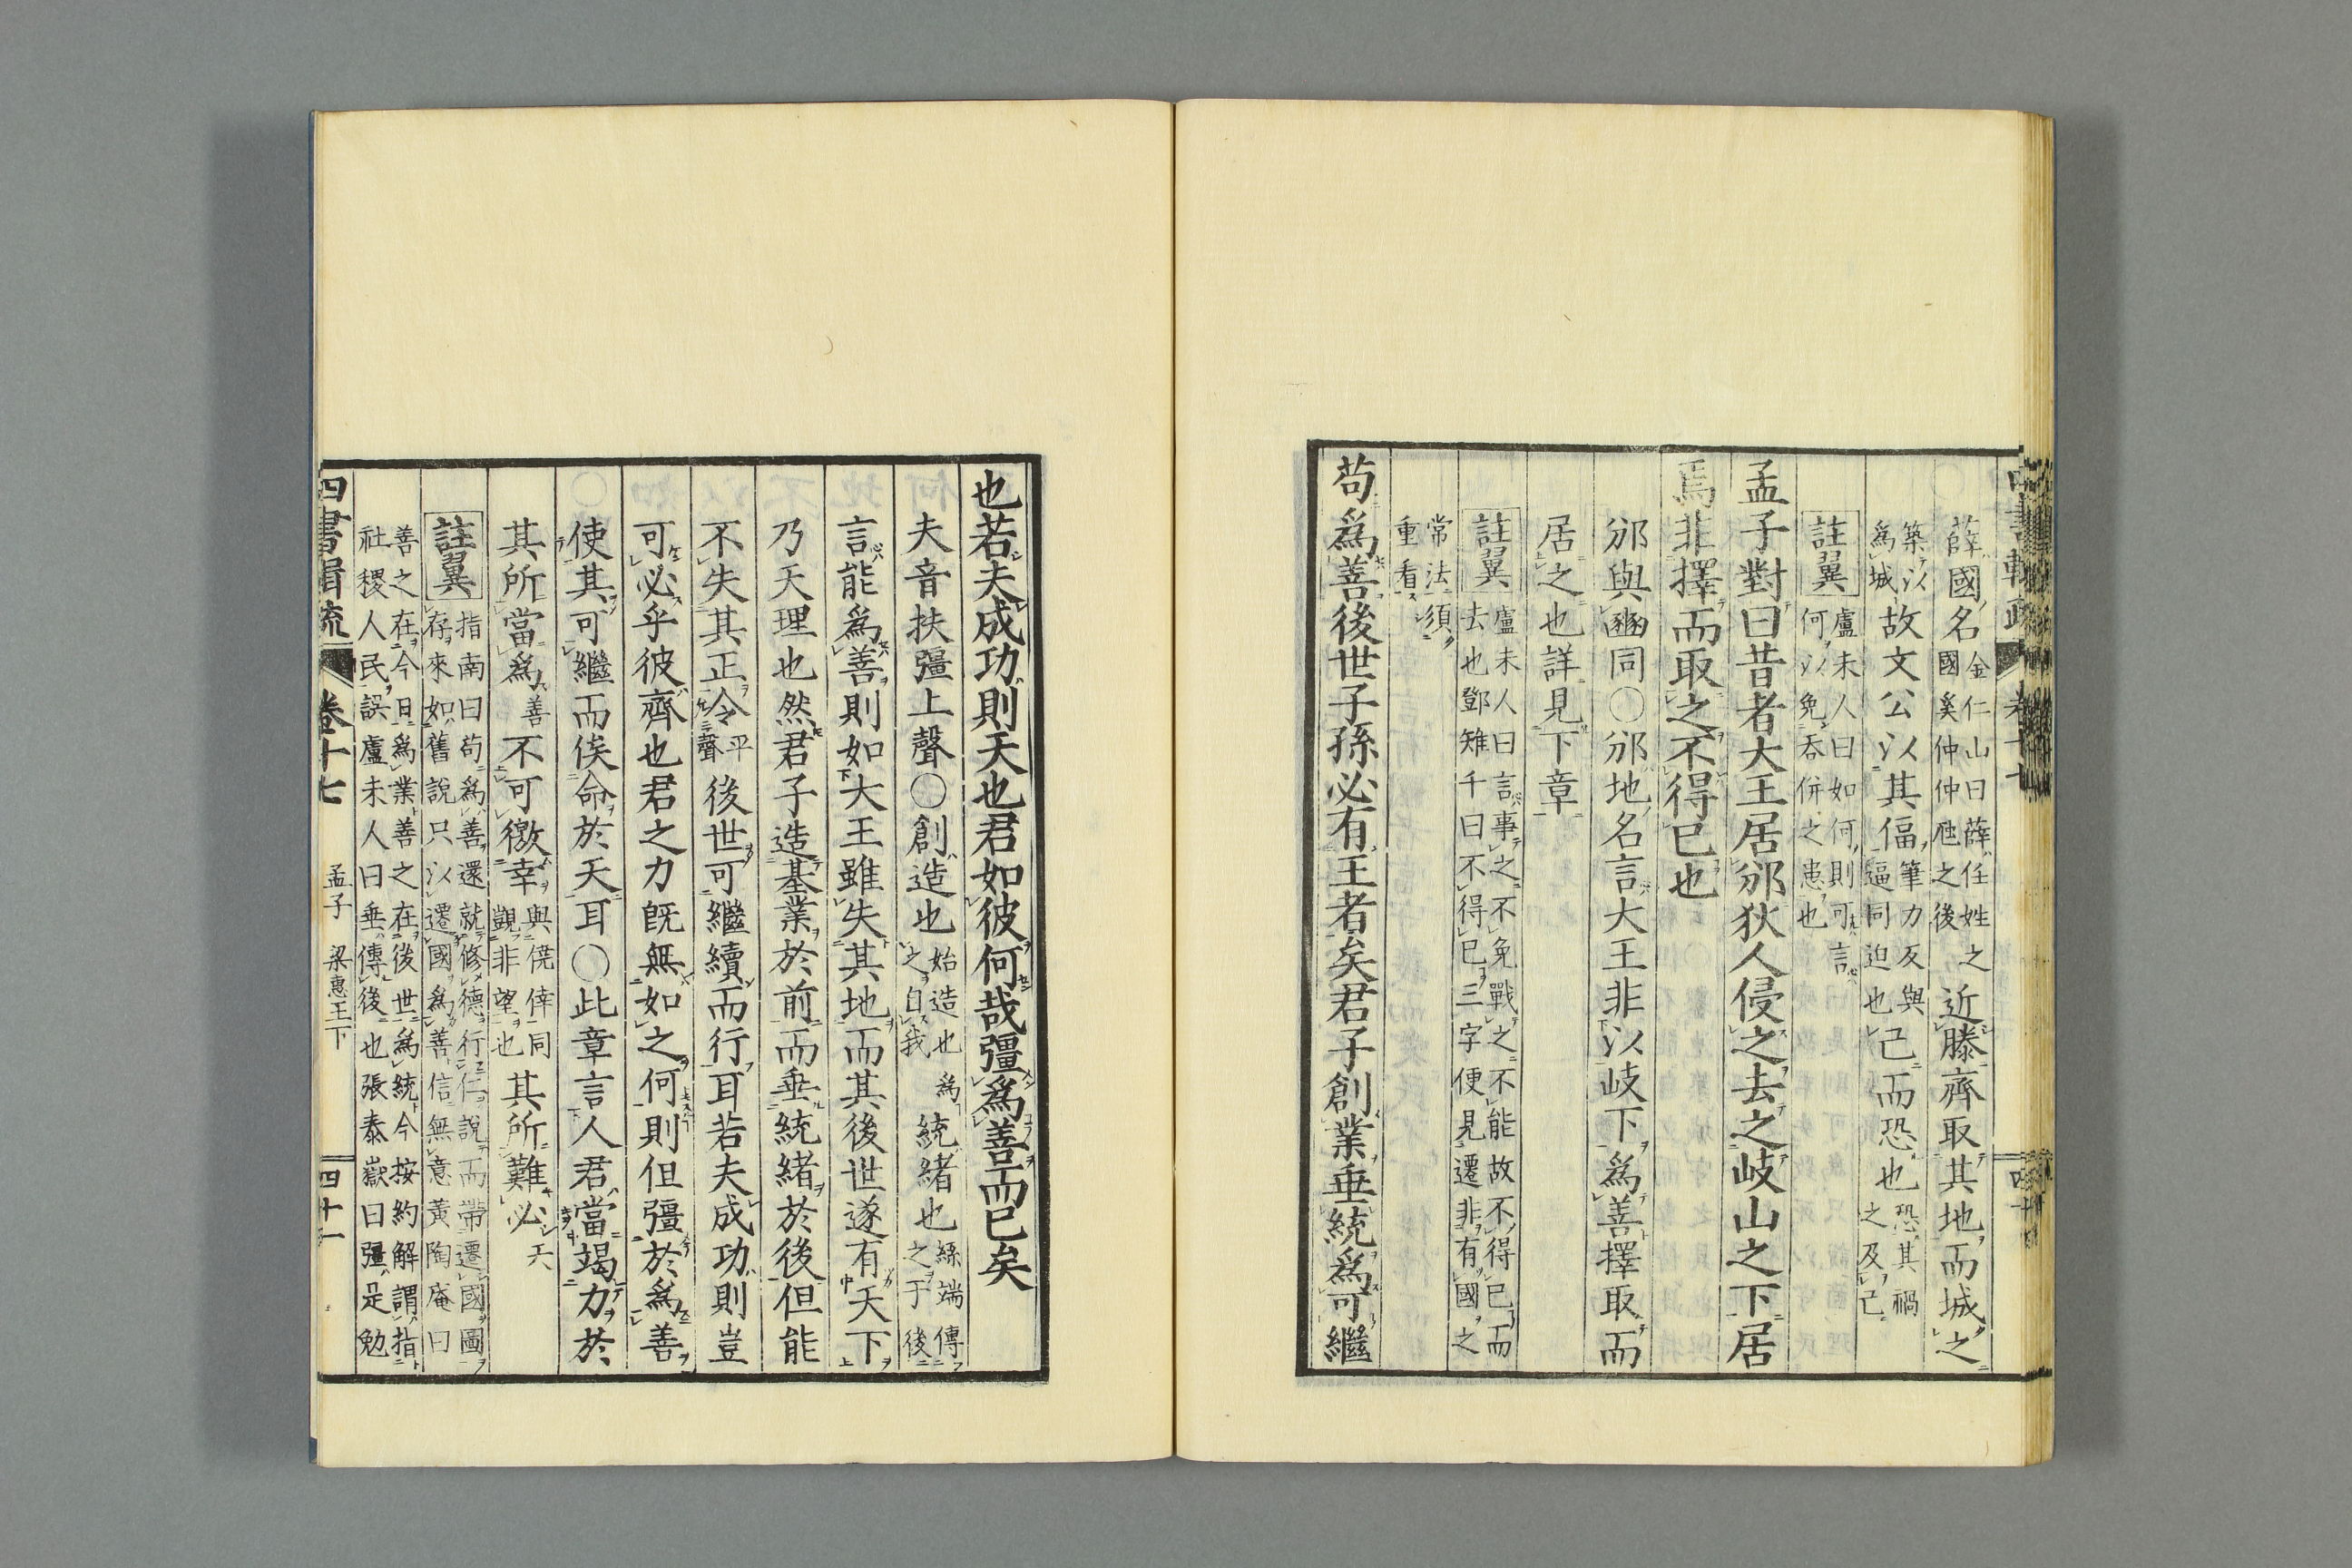 薛國名金仁山曰薛任姓之國奚仲仲虺之後近滕齊取其地而城之
築以爲城故文公以其偪筆力反與逼同迫也己而恐也恐其禍之及己
註翼盧未人曰如何則可言何以免吞併之患也
孟子對曰昔者大王居邠狄人侵之去之岐山之下居
焉非擇而取之不得已也
邠與豳同○邠地名言大王非以岐下爲善擇取而
居之也詳見下章
註翼盧未人曰言事之不免戰之不能故不得已而去也鄧雉千曰不得已三字便見遷非有國之
常法須重看
苟爲善後世子孫必有王者矣君子創業垂統爲可繼
也若夫成功則天也君如彼何哉彊爲善而已矣
夫音扶彊上聲○創造也始造也爲之自我統緒也絲端傳之于後
言能爲善則如大王雖失其地而其後世遂有天下
乃天理也然君子造基業於前而垂統緒於後但能
不失其正令平聲後世可繼續而行耳若夫成功則豈
可必乎彼齊也君之力既無如之何則但彊於爲善
使其可繼而俟命於天耳○此章言人君當竭力於
其所當爲善不可徼幸與僥倖同覬非望也其所難必天
註翼指南曰苟爲善還就修德行仁說而帶遷國圖存來如舊說只以遷國爲善信無意黃陶庵曰
善之在今日爲業善之在後世爲統今按約解謂指社稷人民誤盧未人曰垂傳後也張泰嶽曰彊是勉
四書輯疏 卷十七 孟子 梁惠王下 四十一